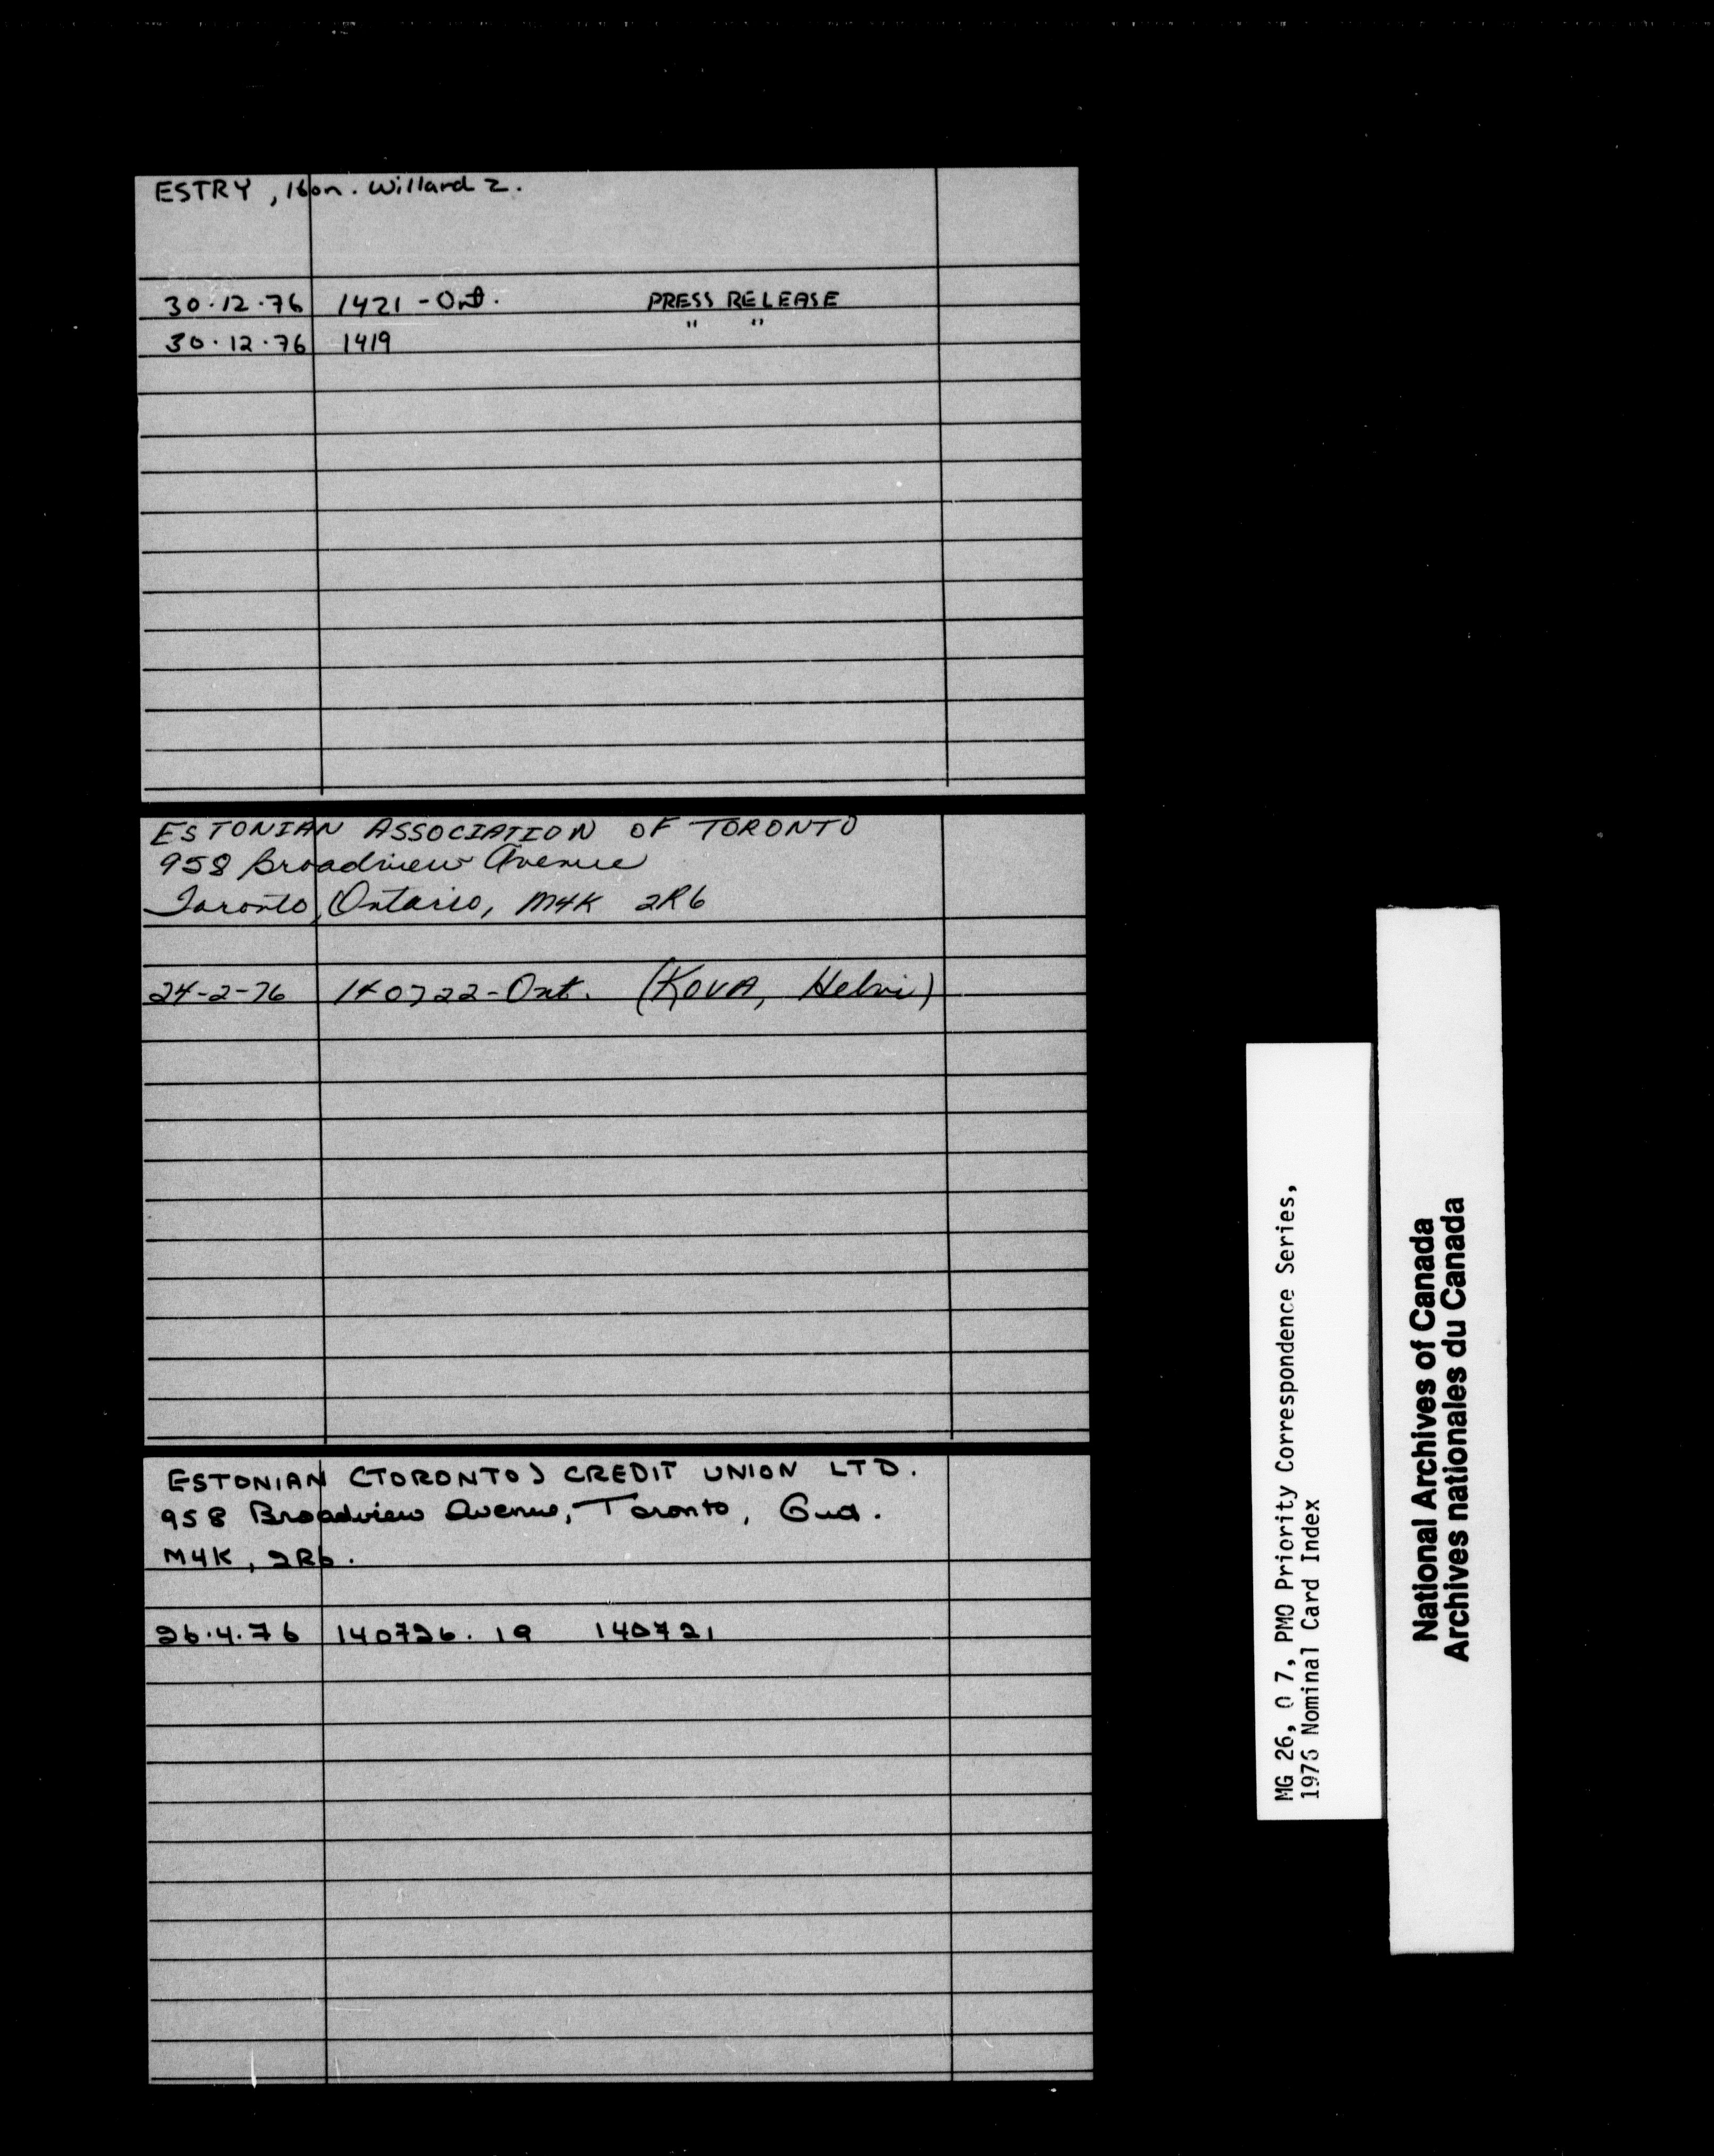 ESTRY, Hon. Willard Z.
30.12.76 1421 - Ont. PRESS RELEASE
30.12.76 1419 " "
ESTONIAN ASSOCIATION OF TORONTO
958 Broadview Avenue
Toronto, Ontario, M4K 2R6
24-2-76 140722-Ont. (KOVA, Helvi)
ESTONIAN (TORONTO) CREDIT UNION LTD.
958 Broadview Avenue, Toronto, Ont.
M4K, 2R6.
26.4.76 140726.19 140721
MG 26, O 7, PMO Priority Correspondence Series,
1976 Nominal Card Index
National Archives of Canada
Archives nationales du Canada